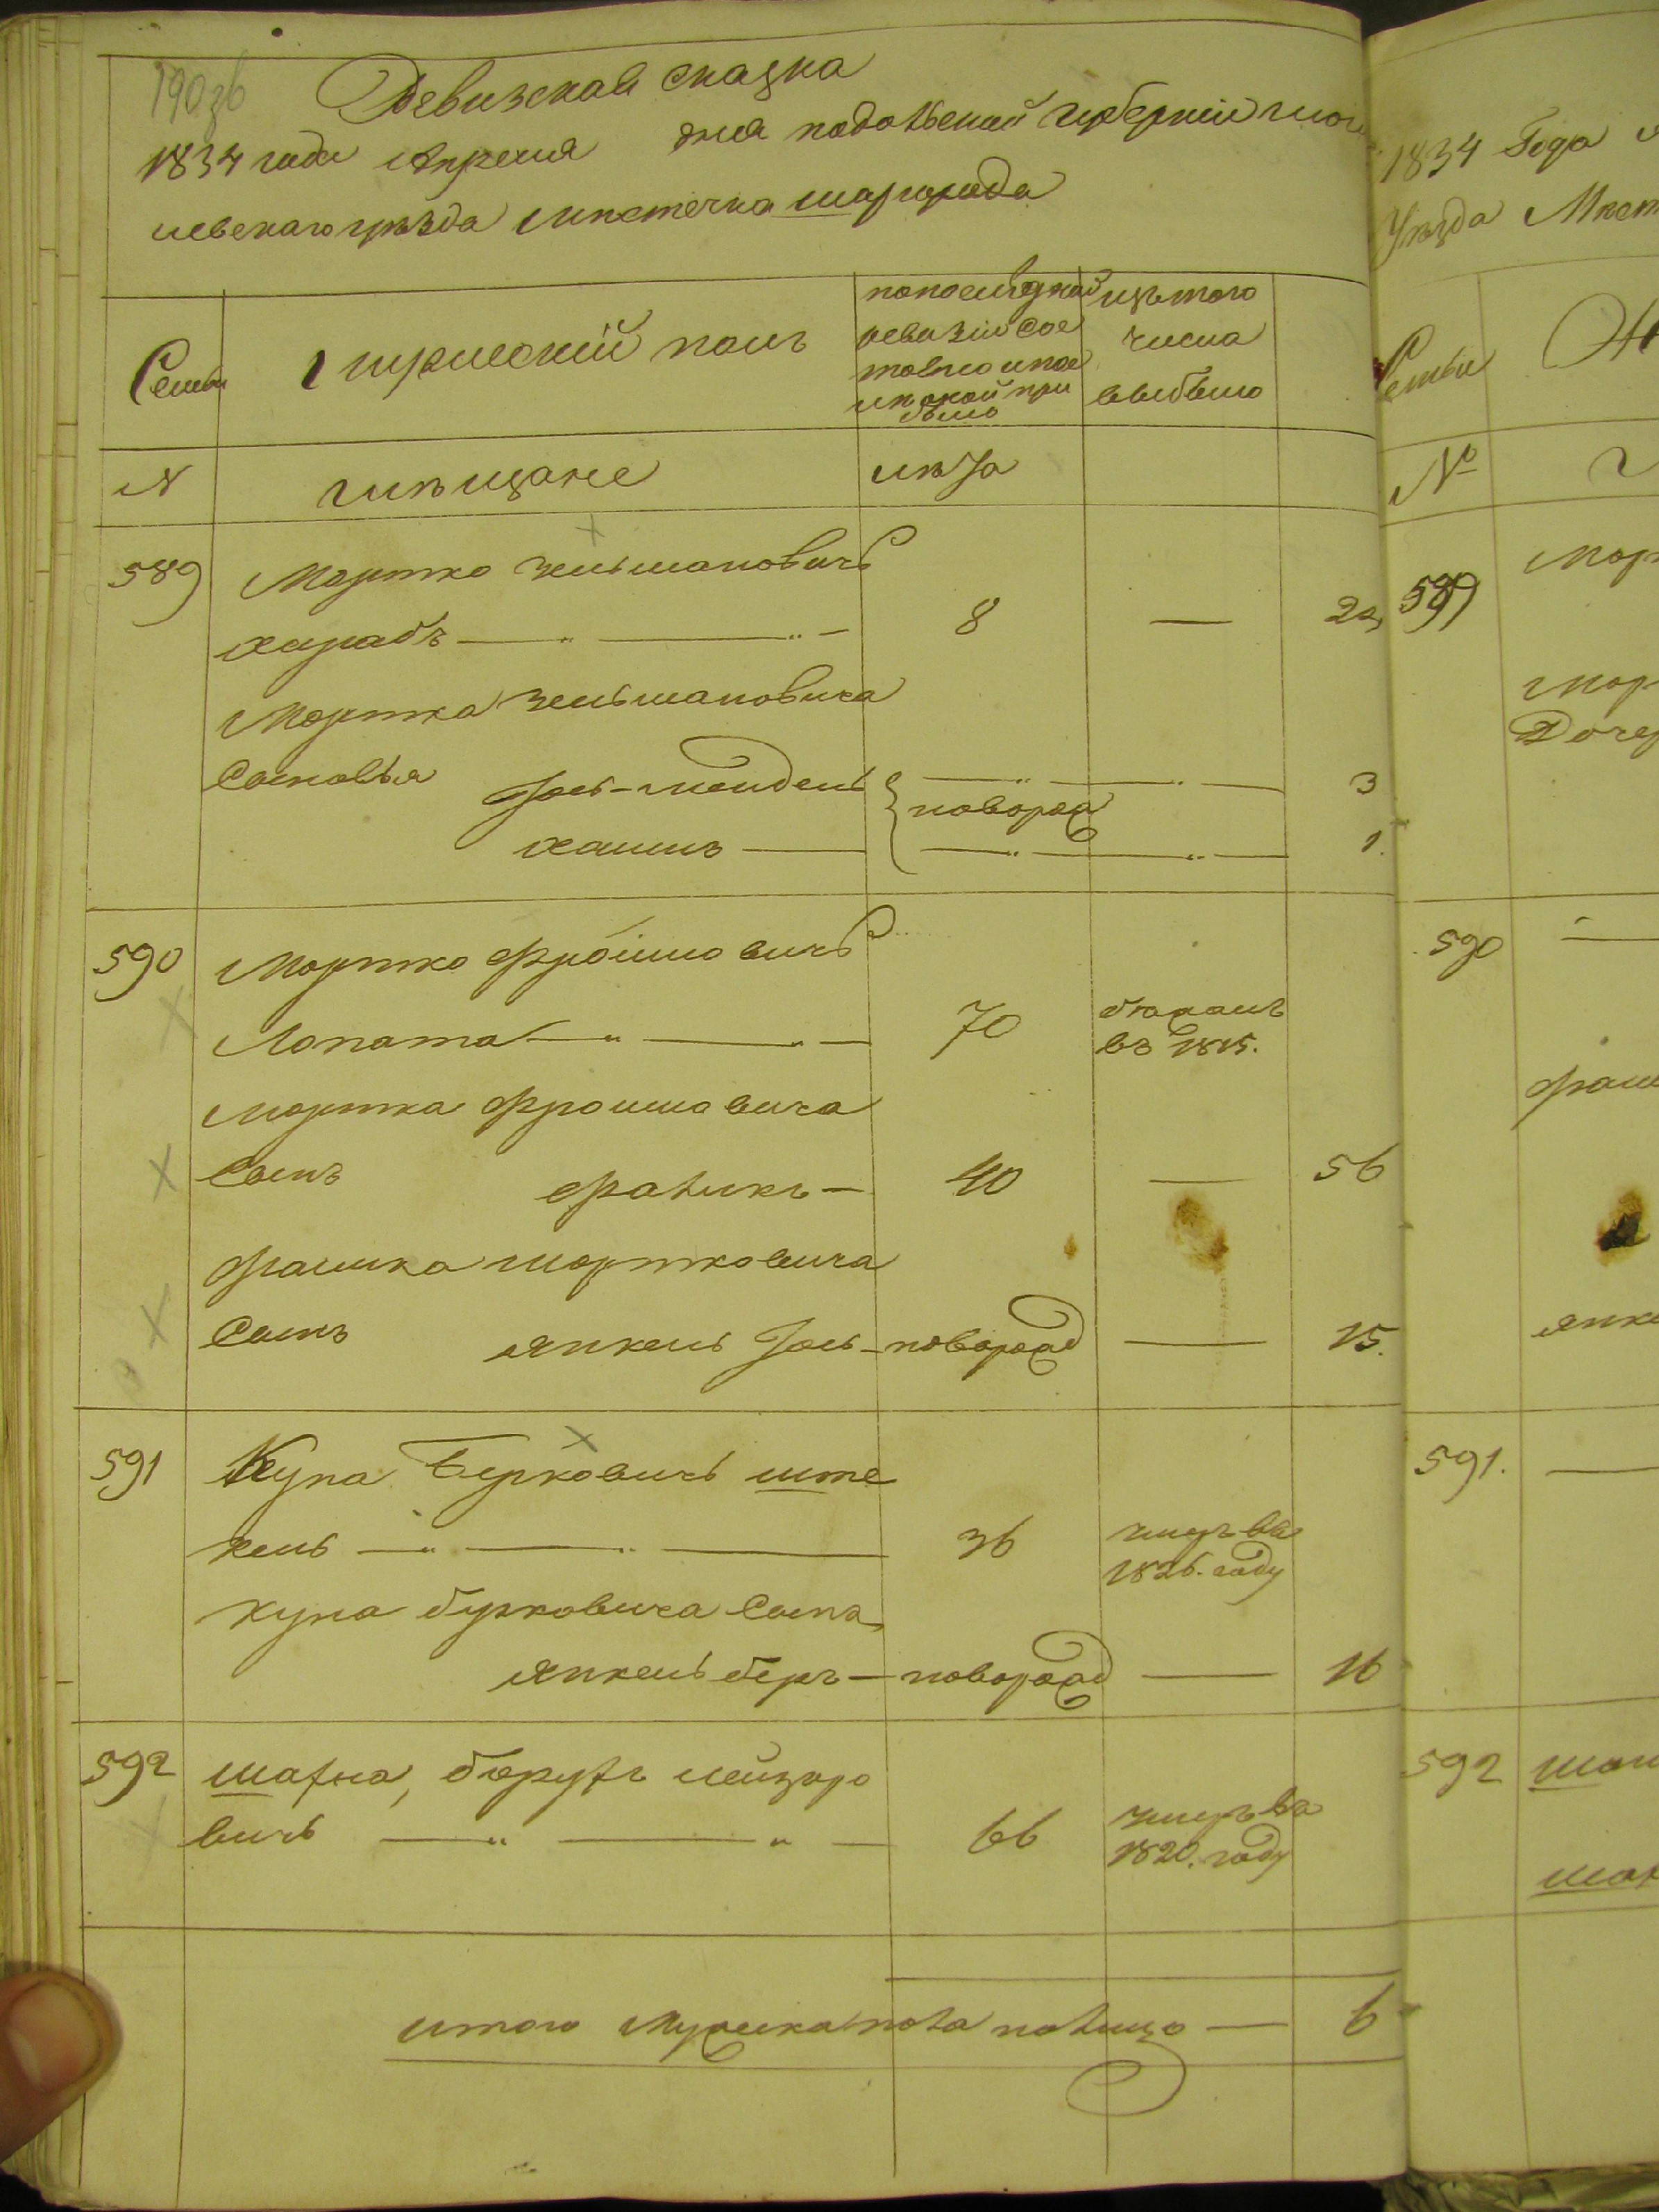 190зв
Ревизская сказка
1834 года Апреля дня подольской губернии моги
левскаго уезда местечка шаргорода
Семьи
мужеский полъ
по последней ревизии состояло и после оной прибыло
изъ того числа выбыло
N
мещане
лета
589
Мортко зельмановичъ
8 — 22
Мортка зельмановича
Сыновья Іось-мендель 3
новорож
хаимъ — 1.
590
Мортко Фроимовичъ
Лопата — 70
бежалъ въ 1815.
мортка Фроимовича
Сынъ Фроимъ — 40 — 56
Фроима мортковича
Сынъ янкель Іось — новорож — 15.
591
Куна Берковичъ ште
кель — 36
умеръ въ 1826. году
куна берковича сынъ
янкель беръ — новорож — 16
592
шахна, борухъ лейзеро
вичъ — 66
умеръ въ 1820. году
итого мужеска пола налицо — 6
1834 Года
Уезда
Семьи
№
589
Дочер
590
591.
592